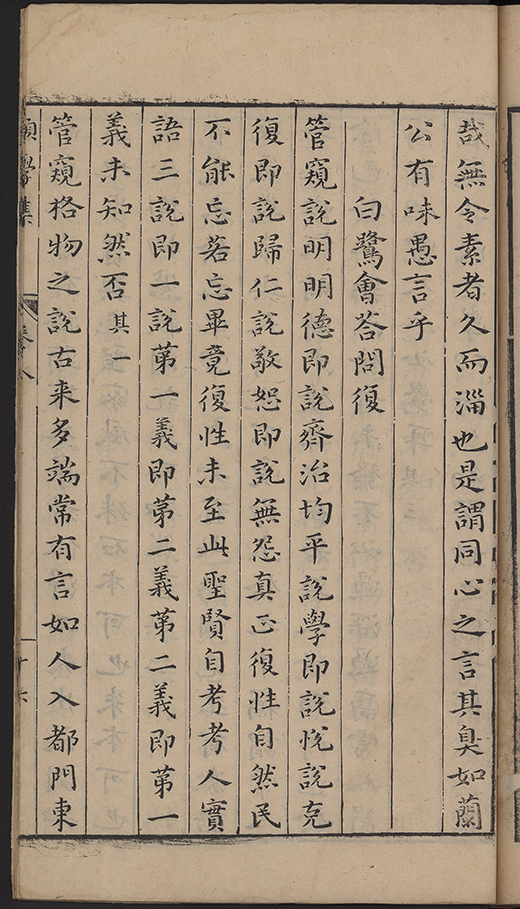 哉無令素者久而淄也是謂同心之言其臭如蘭
公有味愚言乎
白鷺會荅問復
管窺說明明德即說齊治均平說學即說悅說克
復即說歸仁說敬恕即說無怨真正復性自然民
不能忘若忘畢竟復性未至此聖賢自考考人實
語三說即一說苐一義即苐二義苐二義即苐一
義未知然否其一
管窺格物之說古来多端常有言如人入都門東
願學集
卷八